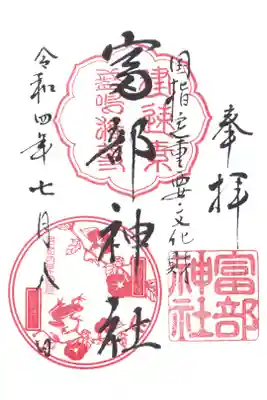 奉拝
国指定重要文化財
富部神社
令和四年七月八日
富部
神社